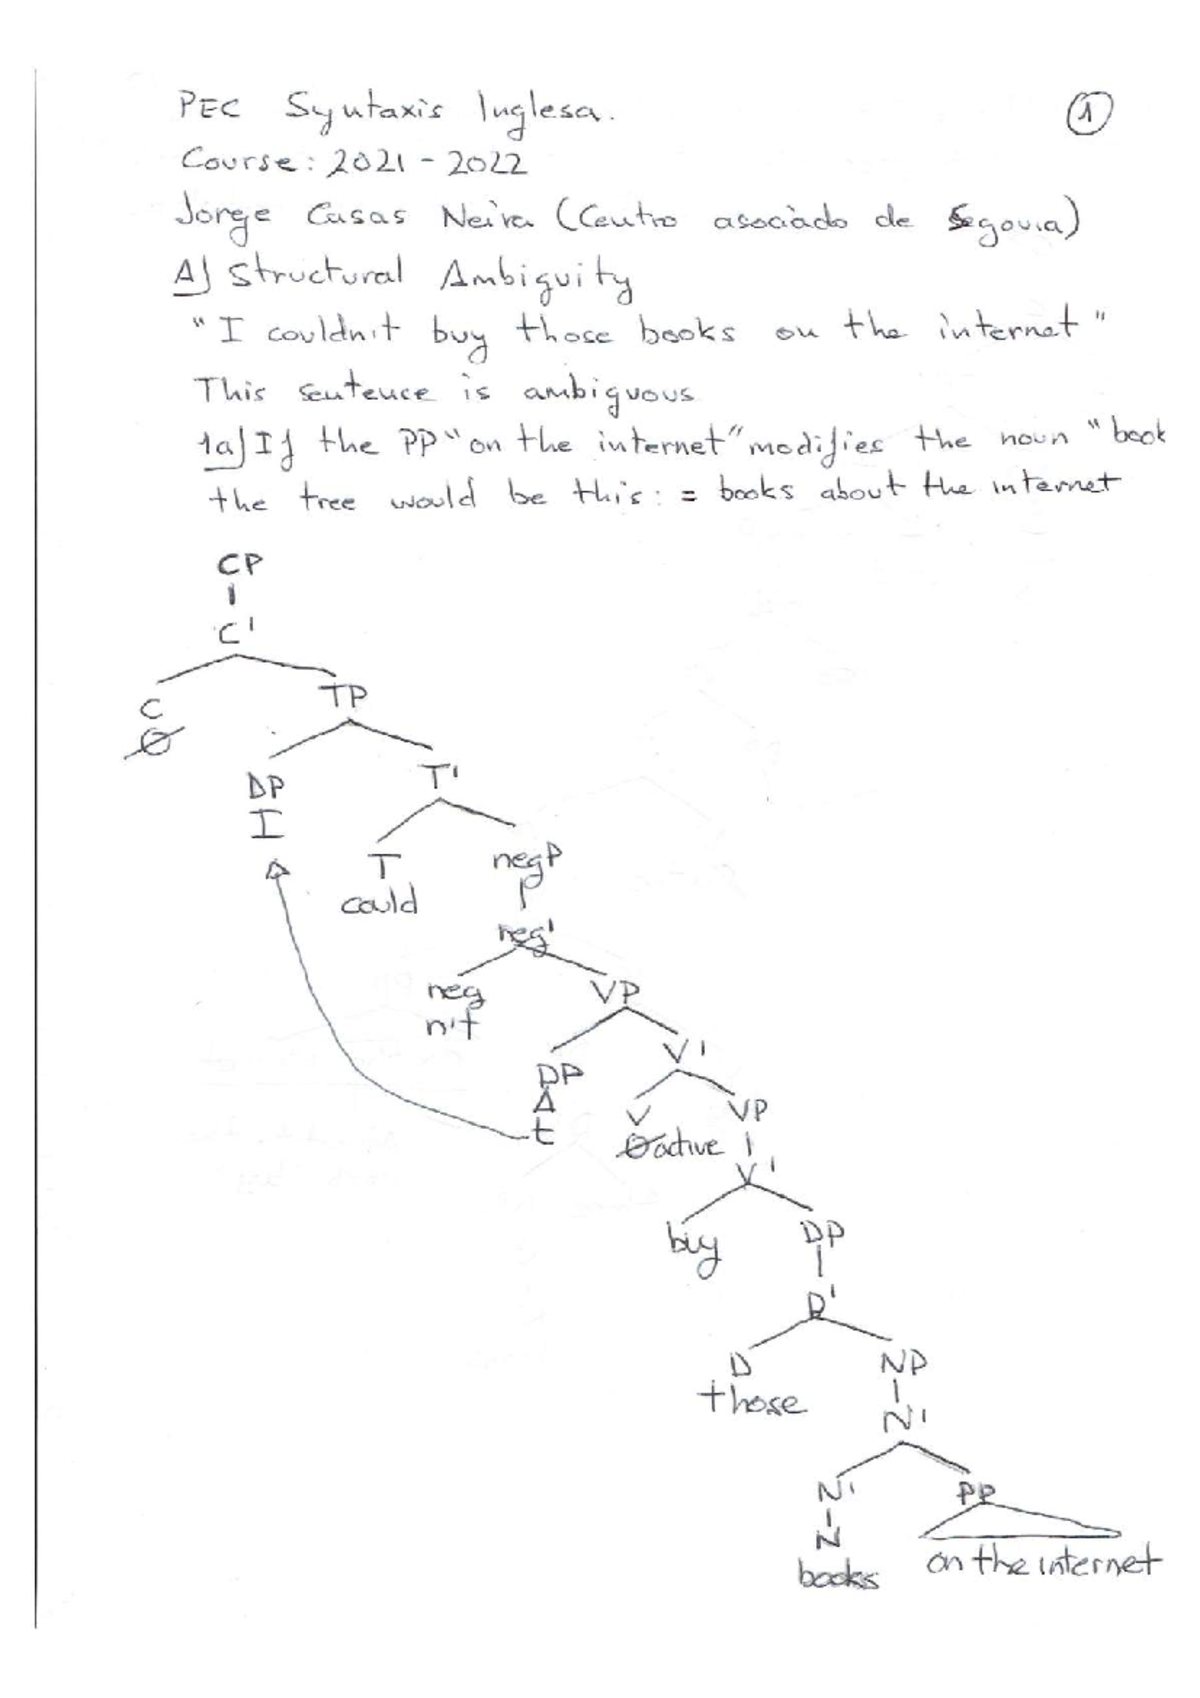 PEC Syntaxis Inglesa.
①
Course: 2021 - 2022
Jorge Casas Neira (Centro asociado de Segovia)
A) Structural Ambiguity
"I couldn't buy those books on the internet"
This sentence is ambiguous
1a) If the PP "on the internet" modifies the noun "book
the tree would be this: = books about the internet
CP
C'
C TP
Ø
DP T'
I
T negP
could
neg'
neg VP
n't
DP V'
t
V VP
Øactive
V'
buy DP
D'
D NP
those
N'
N' PP
N
books on the internet